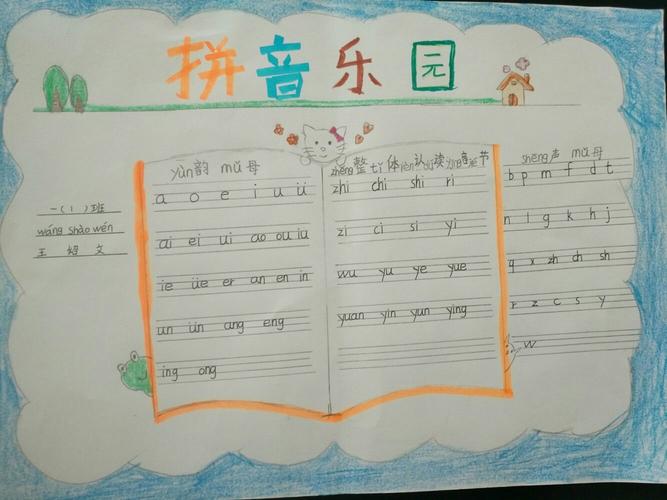 拼音乐园
一(1)班
wáng shào wén
王 文
yùn韵 mǔ母
a o e i u ü
ai ei ui ao ou iu
ie üe er an en in
un ün ang eng
ing ong
zhěng整 tǐ体 rèn认 dú读 yīn音 jié节
zhi chi shi ri
zi ci si yi
wu yu ye yue
yuan yin yun ying
shēng声 mǔ母
b p m f d t
n l g k h j
q x zh ch sh
r z c s y
w